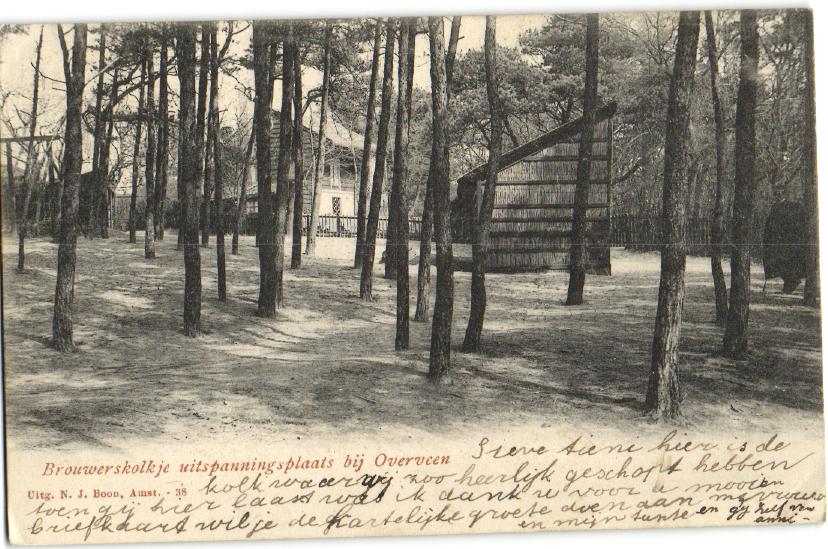 Brouwerskolkje uitspanningsplaats bij Overveen
Uitg. N. J. Boon, Amst. - 38
Lieve tiene hier is de
kolk waar wij zoo heerlijk geschopt hebben
toen gij hier laast was ik dank u voor u mooien
briefkaart wil je de hartelijke groete doen aan mevrouw
en mijn tante en gij zelf van
anni-